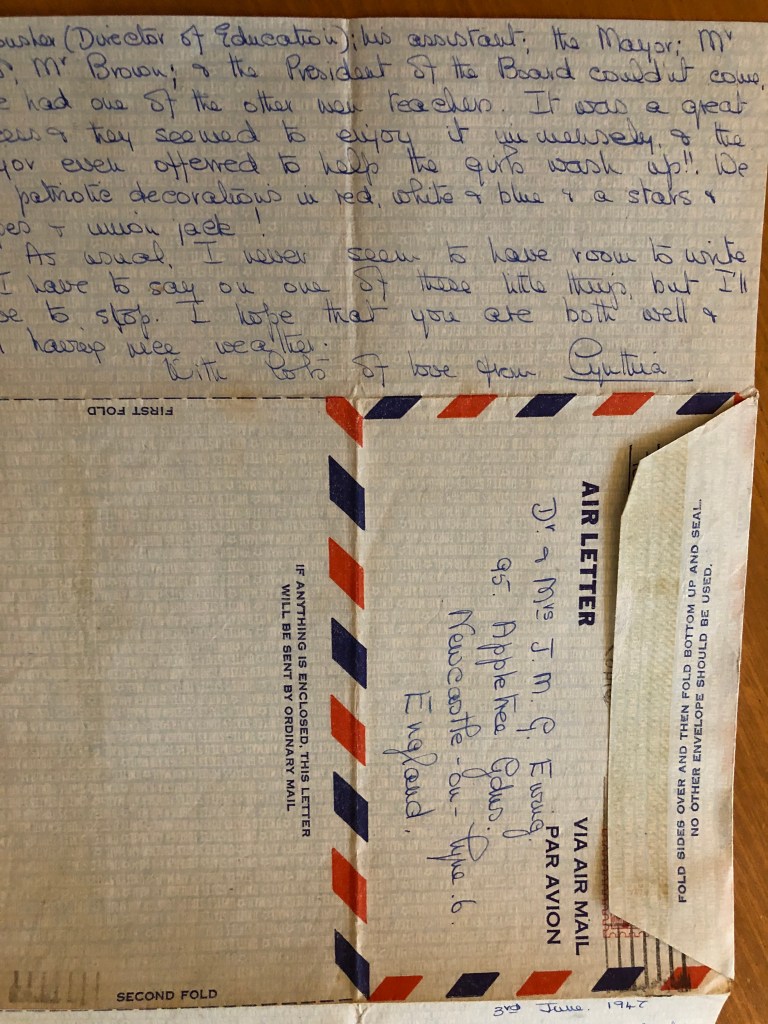 (Director of Education); his assistant; the Mayor; Mr
Mr Brown; & the President of the Board couldn't come,
had one of the other men teachers. It was a great
& they seemed to enjoy it immensely, & the
even offerred to help the girls wash up!! We
patriotic decorations in red, white & blue & a stars &
& union jack!
As usual, I never seem to have room to write
I have to say on one of these little things, but I'll
to stop. I hope that you are both well &
having nice weather.
With lots of love from Cynthia
FIRST FOLD
AIR LETTER
VIA AIR MAIL
PAR AVION
Dr. & Mrs J. M. G. Ewing.
95. Appletree Gdns.
Newcastle-on-Tyne. 6.
England.
FOLD SIDES OVER AND THEN FOLD BOTTOM UP AND SEAL.
NO OTHER ENVELOPE SHOULD BE USED.
IF ANYTHING IS ENCLOSED, THIS LETTER
WILL BE SENT BY ORDINARY MAIL
SECOND FOLD
3rd June. 1947